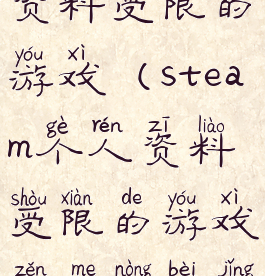 资料受限的
yóu xì
游戏（stea
gè rén zī liào
m个人资料
shòu xiàn de yóu xì
受限的游戏
zěn me nòng bèi jǐng